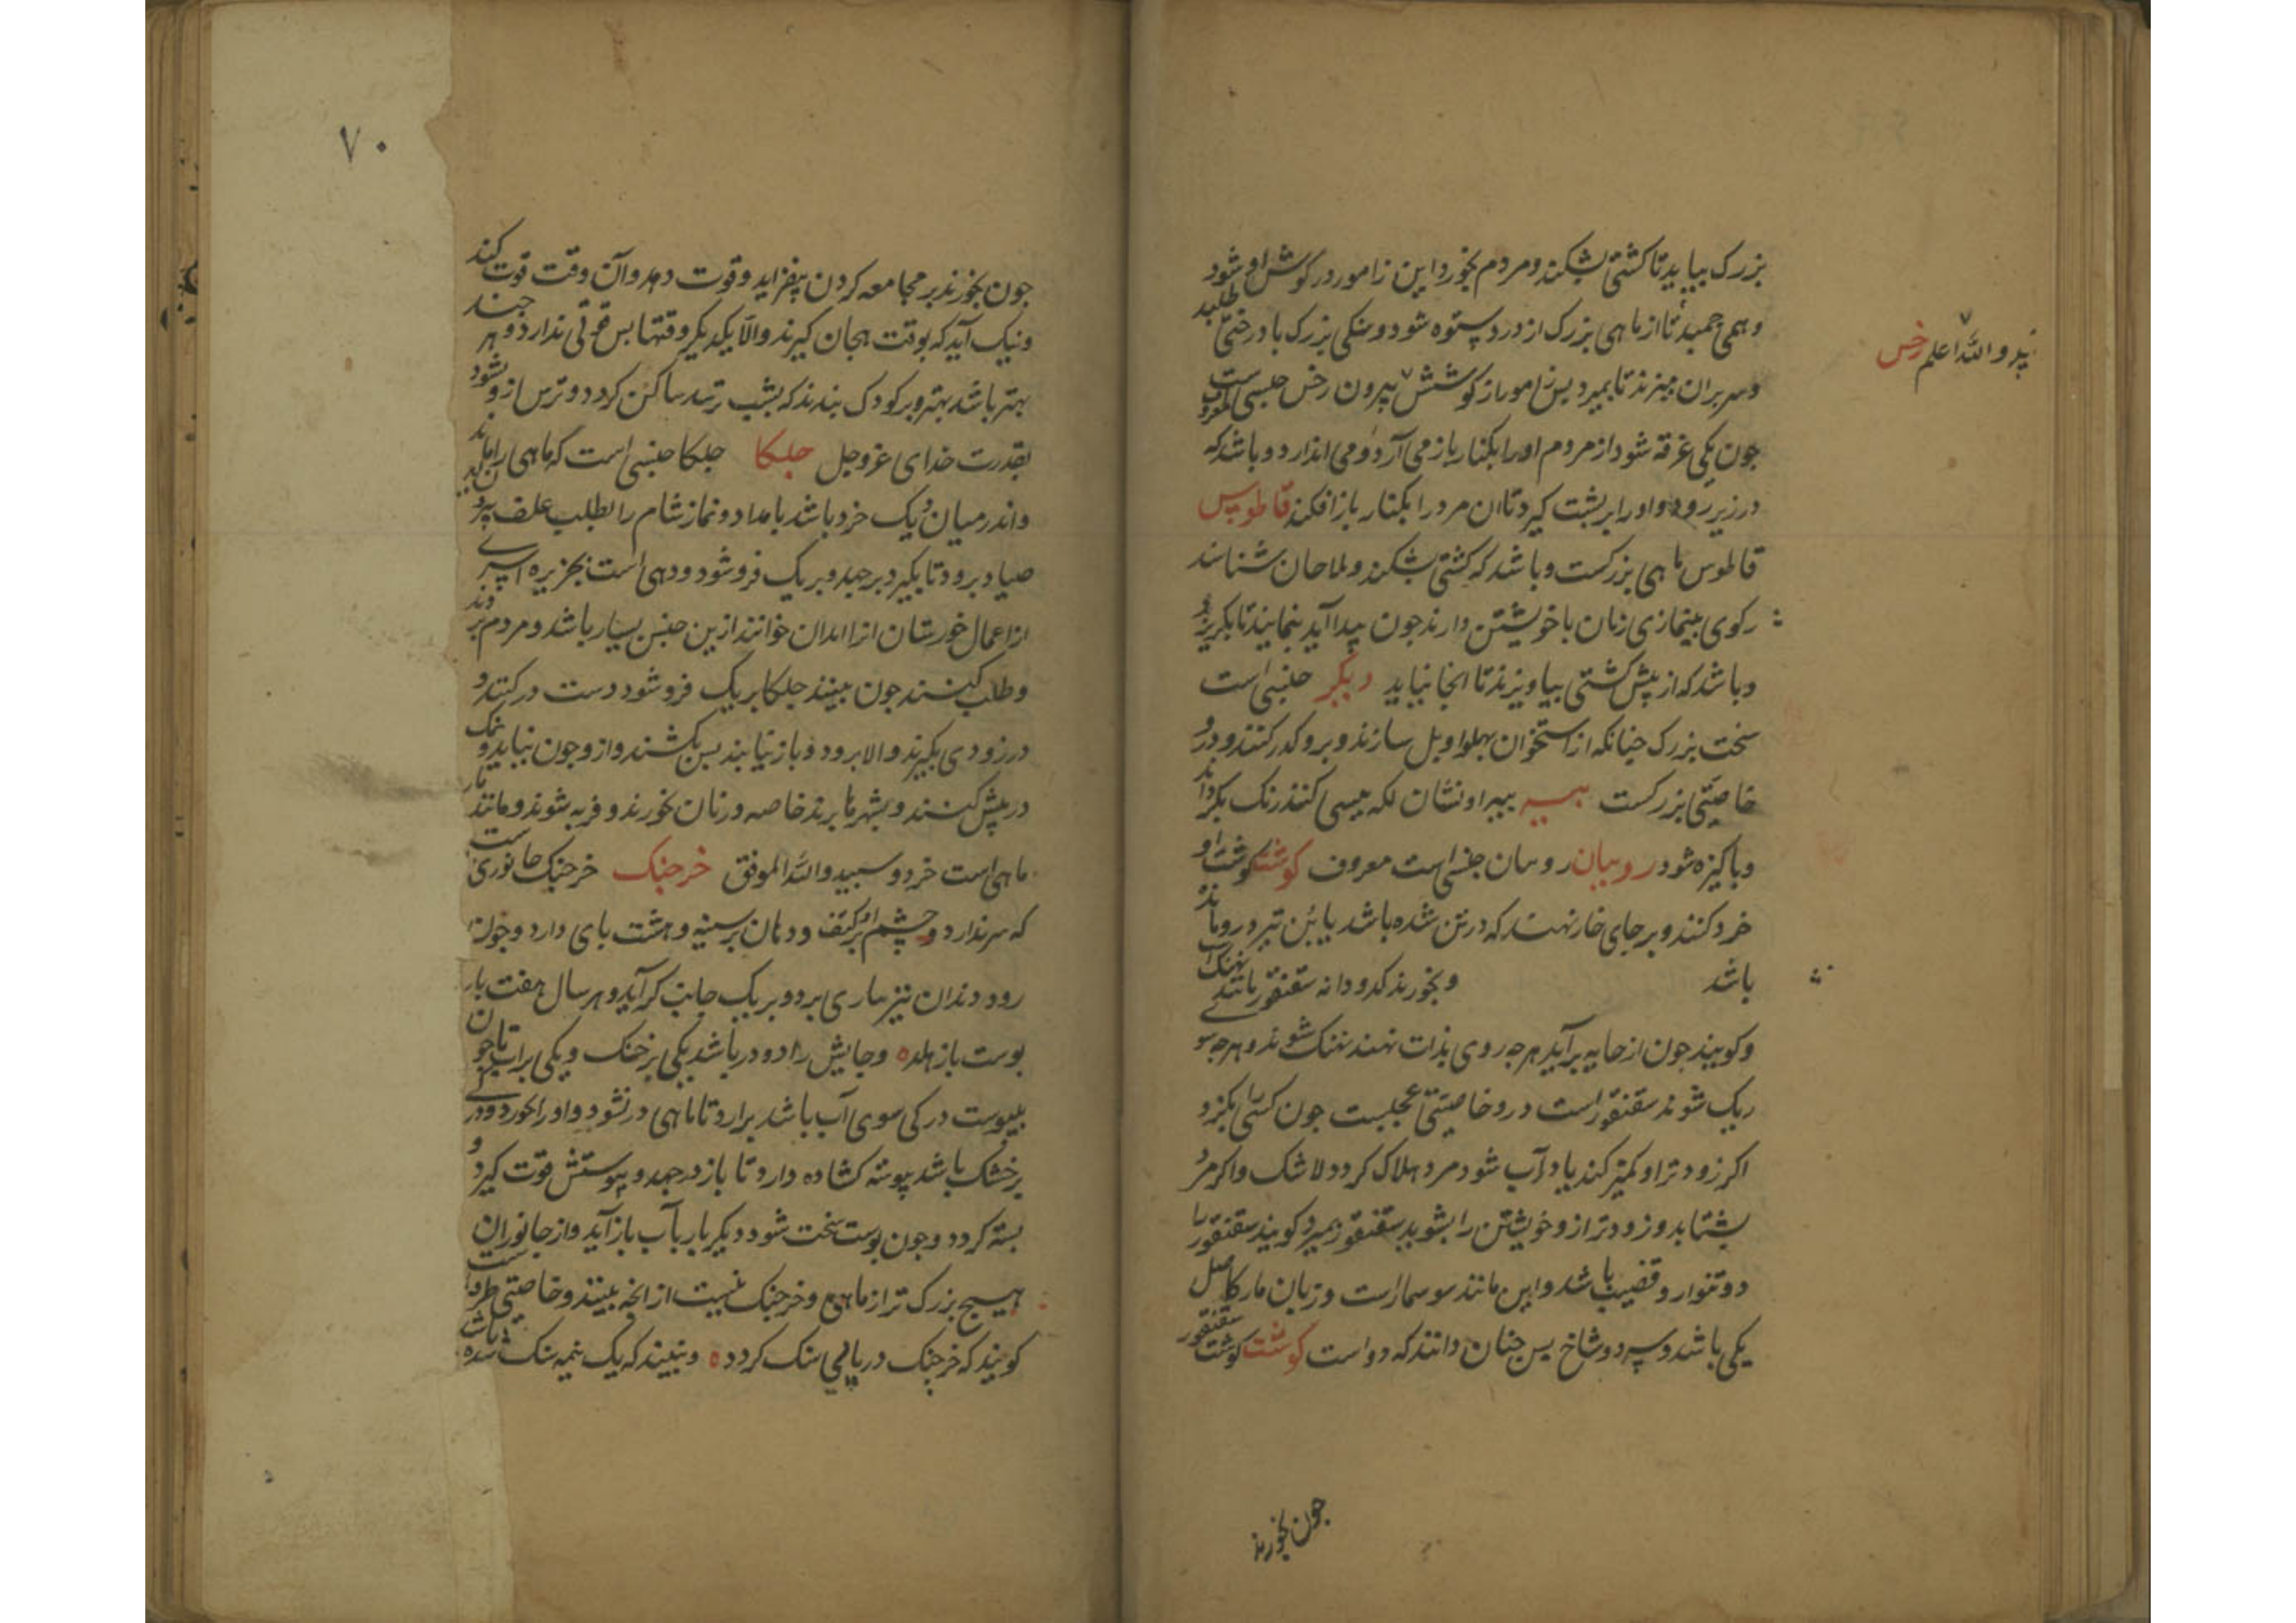 بزرک بیاید تا کشتی بشکند و مردم بخورد این زامور در کوش او شود
و همی جمید تا از ماهی بزرک از درد بستوه شود و سنکی بزرک یا درختی طلبد
و سر بران میزند تا بمیرد بس زامور از کوشش بیرون رخس جنسی است معروف
نپد و الله اعلم رخس
جون یکی غرقه شود از مردم او را بکنار باز می آرد و می اندازد و باشد که
در زیر رود و او را بر بشت کیرد تا ان مرد را بکنار باز افکند قاطوس
قاطوس ماهی بزرکست و باشد که کشتی بشکند و ملاحان شناسند
رکوی بینمازی زنان با خویشتن دارند جون پیدا آید بنمایند تا بکریزد
و باشد که از پیش کشتی بیاویزند تا انجا نیاید دیکر جنسی است
سخت بزرک جنانکه از استخوان بهلو او بل سازند و برو کذر کنند و درو
خاصیتی بزرکست ببیه ببیه او نشان لکه بیسی کند رنک بکرداند
و باکیزه شود روبیان روبیان جنسی است معروف کوشت کوشت او
خرد کنند و بر جای خار نهند که در تن شده باشد یا بن تیر درو مانده
باشد و بخورند کدو دانه سقنقور مانند نهنک است
و کویند جون از خایه برآید هرجه روی بذات نهند نهنک شوند و هرجه سوی
ریک شوند سقنقور است درو خاصیتی عجیبست جون کسی را بکزد
اکر زودتر او کمیز کند یا در آب شود مرد هلاک کردد لاشک و اکر مرد
بشتابد و زودتر ازو خویشتن را بشوید سقنقور بمیرد کویند سقنقور را
دو تنوار و قضیب باشد و این مانند سوسمار است و زبان مار کاصل
یکی باشد و سر دو شاخ بس جنان دانند که دو است کوشت کوشت سقنقور
جون بخورند
۷۰
جون بخورند بر مجامعه کردن بیفزاید و قوت دهد و آن وقت قوت کند
و نیک آید که بوقت هیجان کیرند و الا یکدیکر وقتها بس قوتی ندارد و هر جند
بهتر باشد بهتر و بر کودک بندند که بشب ترسد ساکن کردد و ترس ازو بشود
بقدرت خدای عز و جل جلکا جلکا جنسی است که ماهی را ماند
و اندر میان ریک خرد باشد بامداد و نماز شام را بطلب علف بیرون آید
صیاد برود تا بکیرد برجهد و بریک فرو شود و دهی است بجزیره
از اعمال خورستان انرا اندان خوانند ازین جنس بسیار باشد و مردم بروند
و طلب کنند جون بینند جلکا بریک فرو شود دست درکنند و
در زودی بکیرند و الا برود و باز نیابند بس بکشند و ازو جون بیاید و نمک
در پیش کنند و بشهرها برند خاصه و زنان خورند و فربه شوند و مانند مار
ماهی است خرد و سبید و الله الموفق خرجنک خرجنک جانوری است
که سر ندارد و چشم او بر کتف و دهان بر سینه و هشت بای دارد و جون
رود دندان نیز یاری برد و بریک جانب کراید و هر سال هفت بار
بوست باز هلد ه و جایش را دو در باشد یکی بر خشک و یکی بر آب تا جون
بیوست در کی سوی آب باشد برارد تا ماهی در نشود و او را نخورد و دری
بر خشک باشد پیوسته کشاده دارد تا باز درجهد و پوستش قوت کیرد و
بسته کردد و جون بوست سخت شود دیکر بار بآب بازآید و از جانوران
هیسج بزرک تر از ماهی و خرجنک نیست از انجه بینند و خاصیتی
کویند که خرجنک در یا می سنک کردد ه و بینند که یک نیمه سنک شده باشد